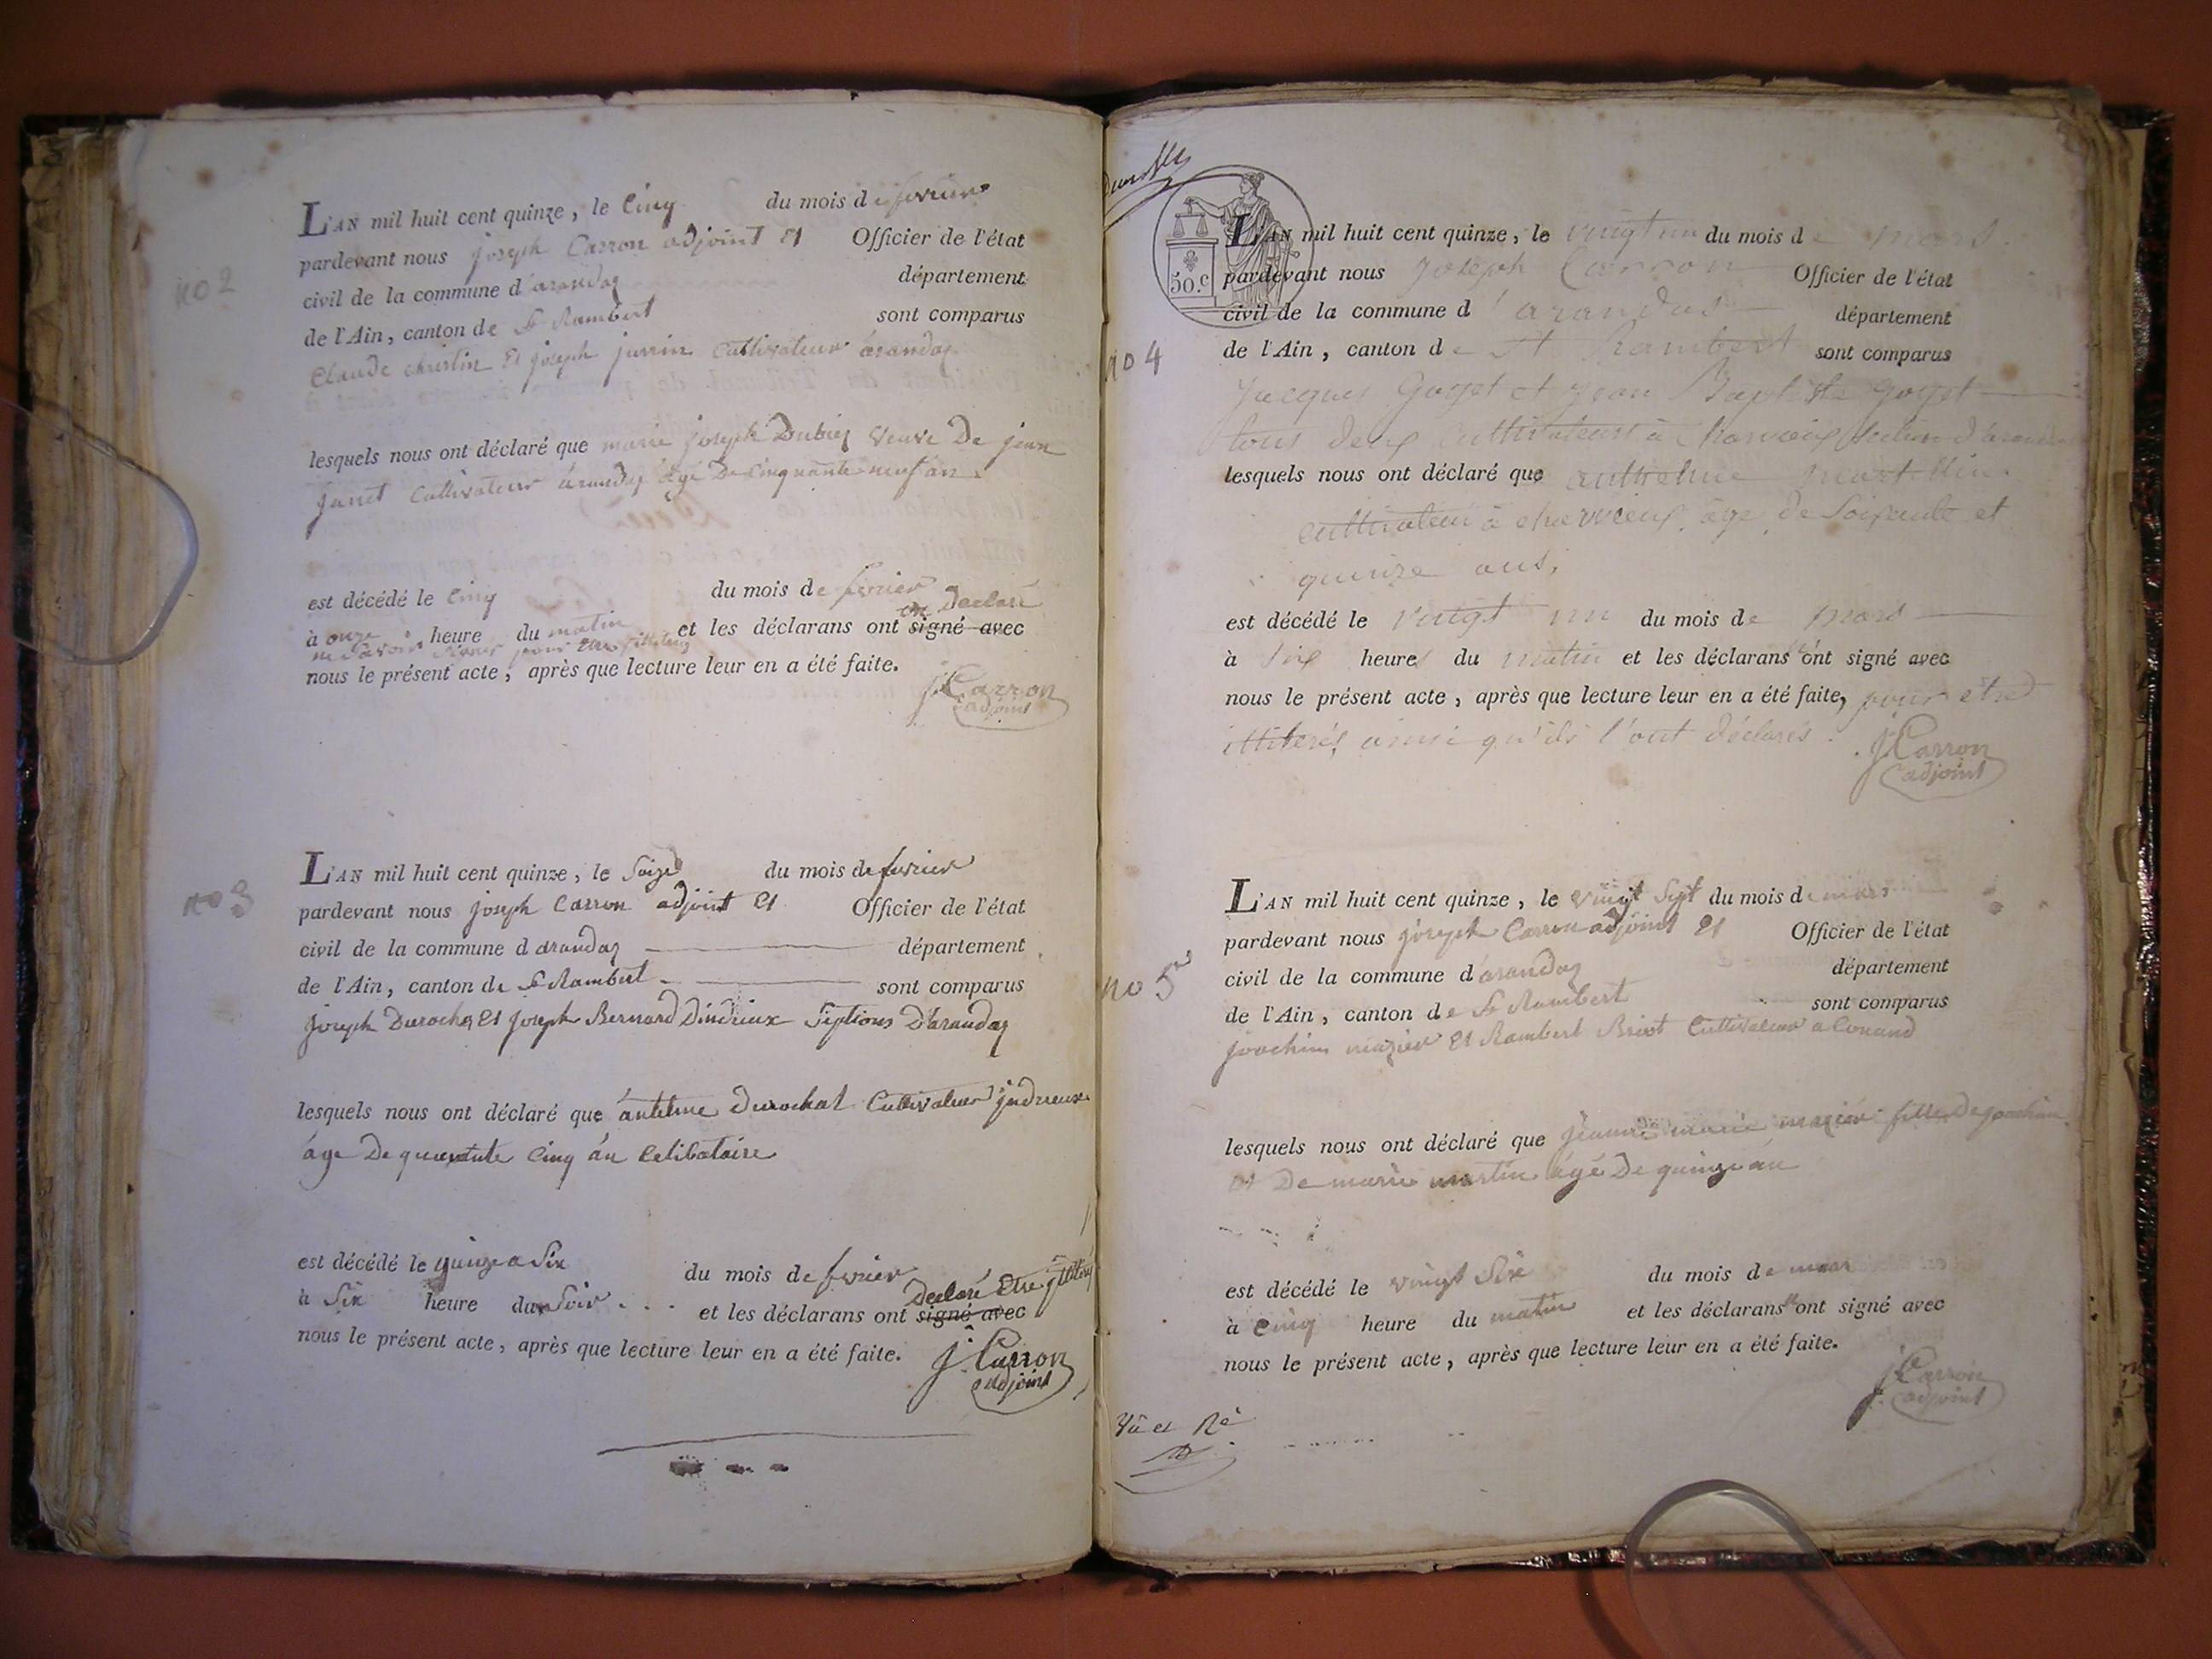 no 2
L'AN mil huit cent quinze, le Cinq du mois de fevrier
pardevant nous joseph Carron adjoint Et Officier de l'état
civil de la commune d'arandas département
de l'Ain, canton de St Rambert sont comparus
Claude christin Et joseph jurrin Cultivateur árandas
lesquels nous ont déclaré que marie joseph Dubiez veuve De jean
janet Cultivateur árandas âgé De Cinquante neuf an
est décédé le Cinq du mois de fevrier
on Declaré
à onze heure du matin et les déclarans ont signé avec
ne Savoir Signer pour Etre
nous le présent acte, après que lecture leur en a été faite.
J. Carron
adjoint
no 3
L'AN mil huit cent quinze, le Seize du mois de fevrier
pardevant nous joseph Carron adjoint Et Officier de l'état
civil de la commune d arandas département
de l'Ain, canton de St Rambert sont comparus
joseph Durochat Et joseph Bernard Dindrieux Sections D'arandas
lesquels nous ont déclaré que ántelme Durochat Cultivateur jndrieux
áge De quarante Cinq án Celibataire
est décédé le quinze a Six du mois de fevrier
Declaré Etre
à Six heure du Soir et les déclarans ont signé avec
nous le présent acte, après que lecture leur en a été faite.
J. Carron
adjoint
50.c
L'AN mil huit cent quinze, le vingt un du mois de mars.
pardevant nous Joseph Carron Officier de l'état
civil de la commune d'arandas département
no 4
de l'Ain, canton de St Rambert sont comparus
Jacques Goyet et Jean Baptiste goyet
tous deux Cultivateurs à
lesquels nous ont déclaré que anthelme
cultivateur à âge de Soixante et
quinze ans,
est décédé le vingt un du mois de mars
à Six heures du matin et les déclarans n'ont signé avec
nous le présent acte, après que lecture leur en a été faite, pour etre
illiterés ainsi qu'ils l'ont déclarés.
J. Carron
adjoint
L'AN mil huit cent quinze, le vingt Sept du mois de mars
pardevant nous joseph Carron adjoint Et Officier de l'état
no 5
civil de la commune d'arandas département
de l'Ain, canton de St Rambert sont comparus
joachim mazier Et Rambert Cultivateur a Conand
lesquels nous ont déclaré que jeanne marie mazier fille De joachim
et De marie martin âgé De quinze án
est décédé le vingt Six du mois de mars
à Cinq heure du matin et les déclarans n'ont signé avec
nous le présent acte, après que lecture leur en a été faite.
J. Carron
adjoint
Vû et